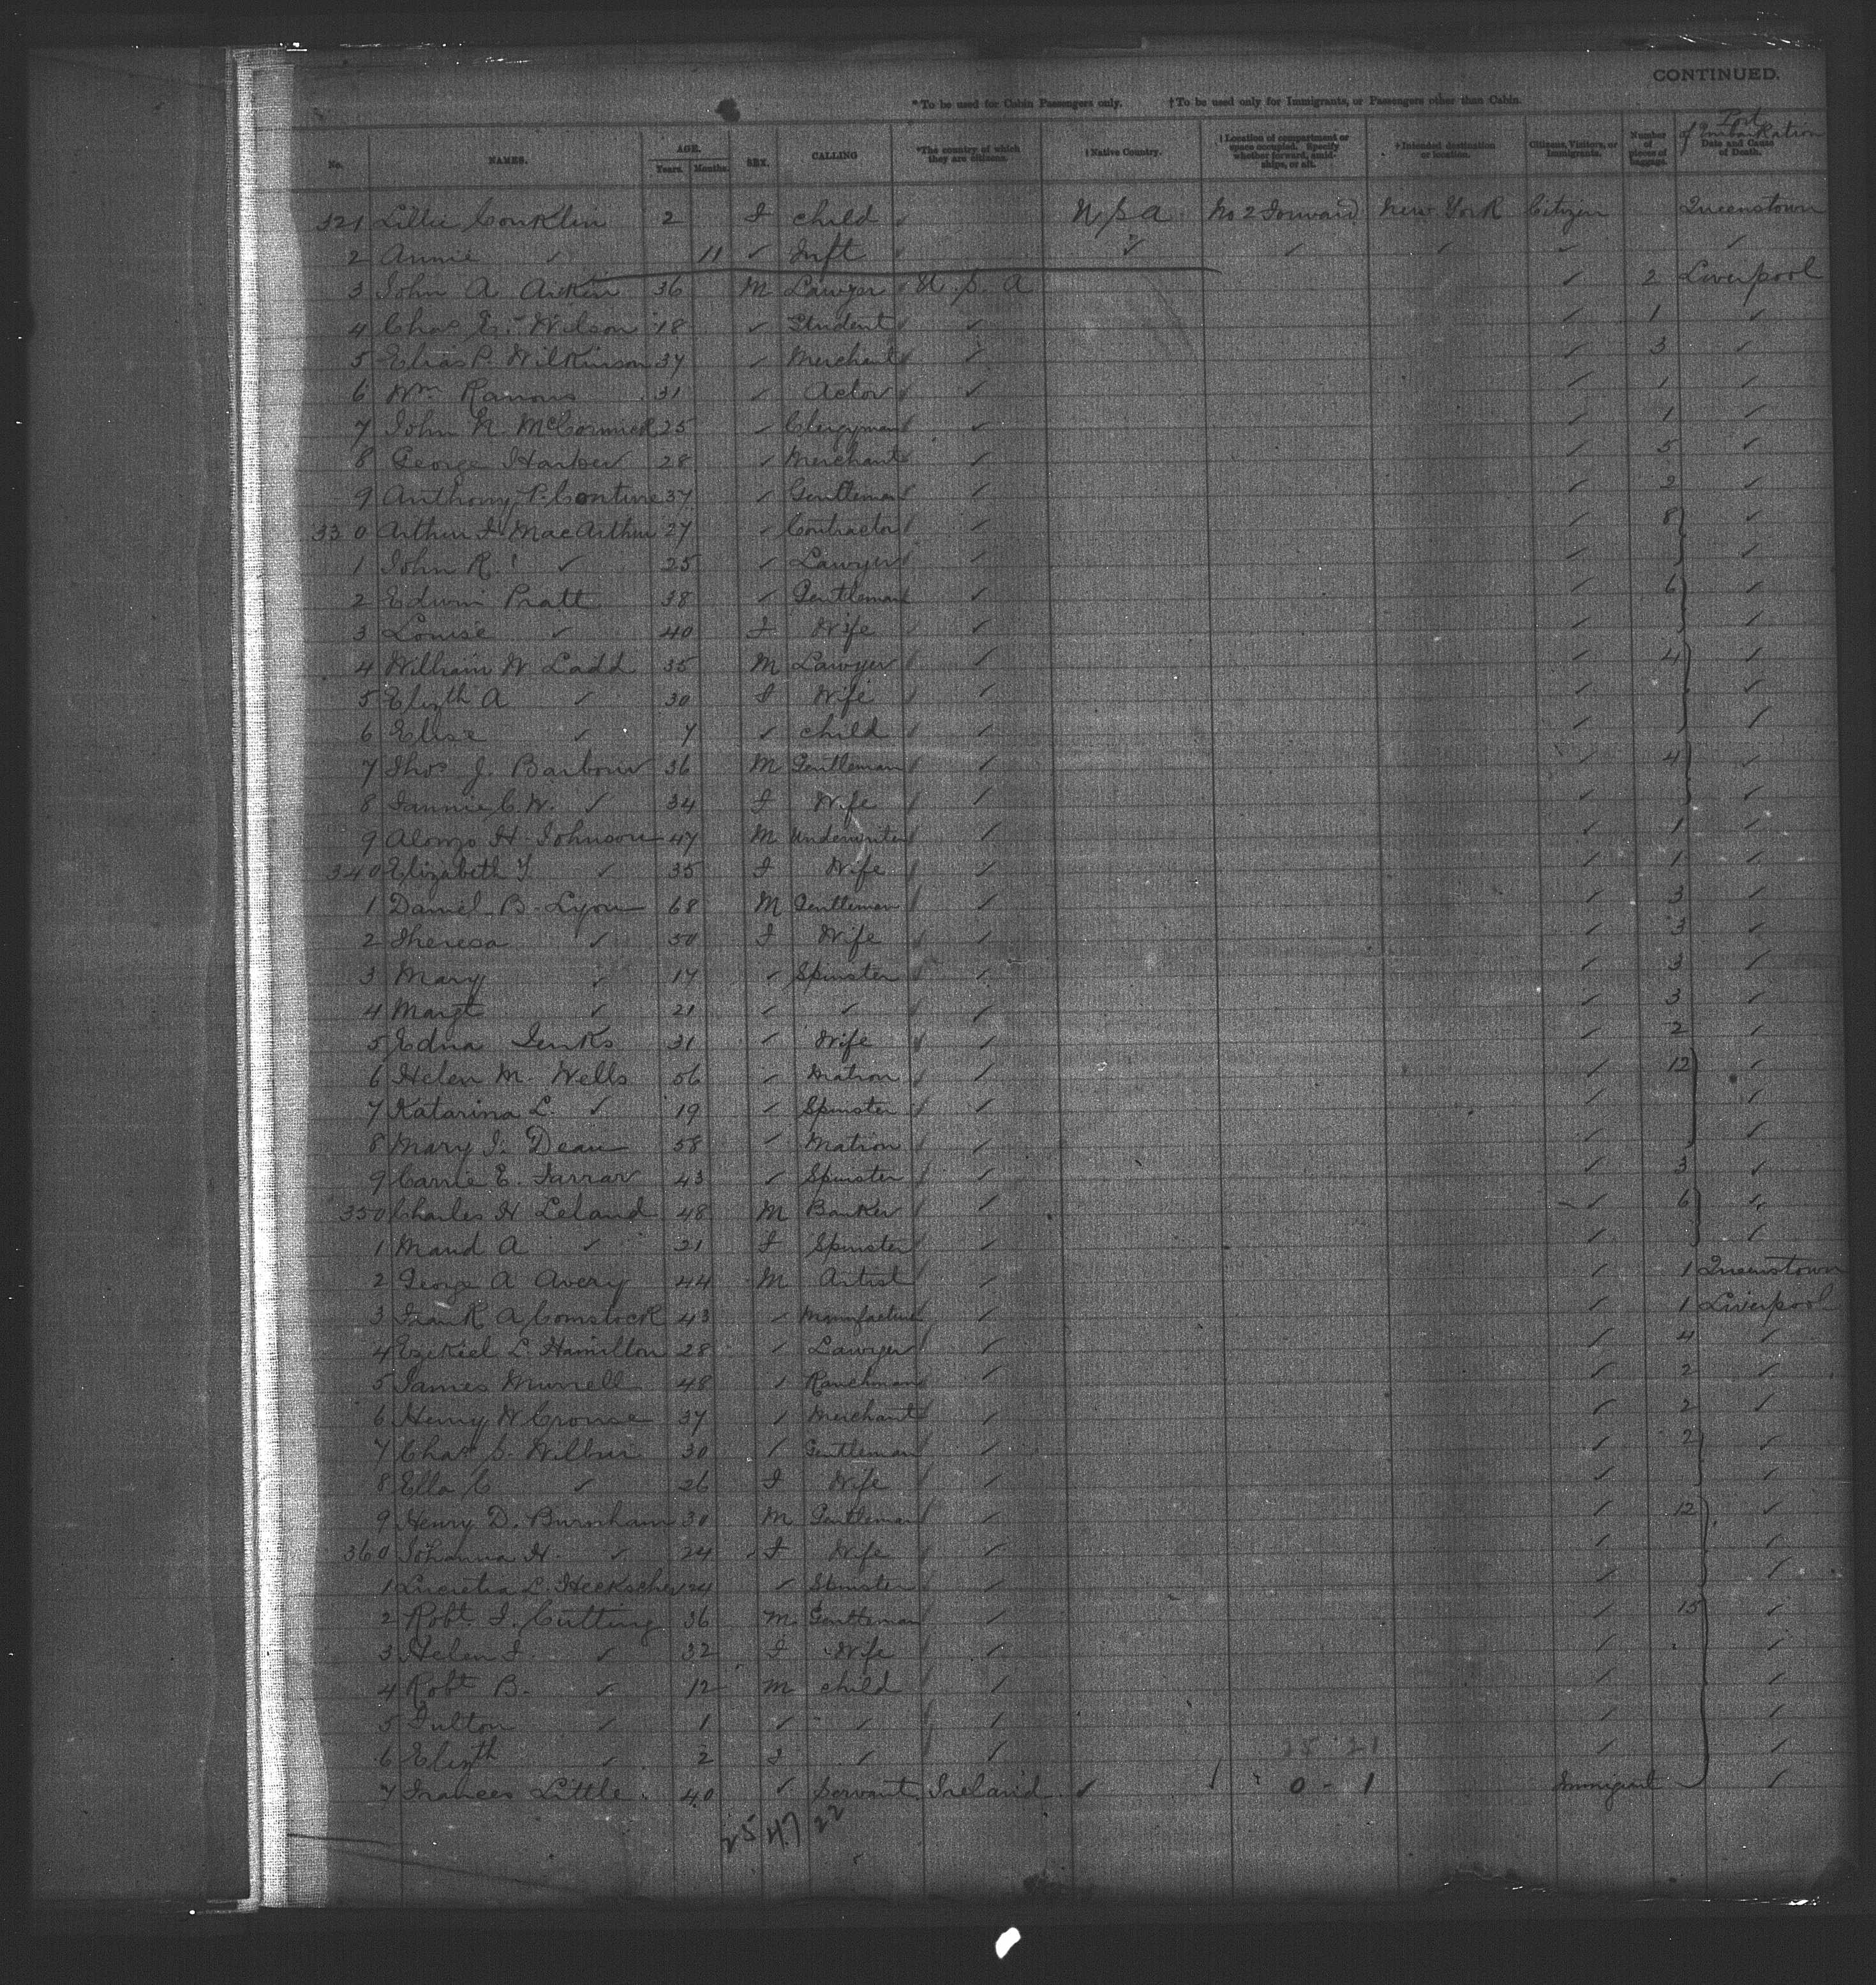 CONTINUED.
*To be used for Cabin Passengers only. †To be used only for Immigrants, or Passengers other than Cabin.
No. NAMES. AGE. Years. Months. SEX. CALLING *The country of which they are citizens. †Native Country. †Location of compartment or space occupied. Specify whether forward, amidships, or aft. †Intended destination or location. Citizens, Visitors, or Immigrants. Number of pieces of baggage. Port of Embarkation Date and Cause of Death.
321 Lillie Conklin 2 F child ✓ U S A No 2 Forward New York Citizen Queenstown
2 Annie ✓ 11 ✓ Inft ✓ ✓ ✓ ✓ ✓ ✓
3 John A Aitken 36 M Lawyer U. S. A ✓ 2 Liverpool
4 Chas E. Wilson 18 ✓ Student ✓ ✓ 1 ✓
5 Elias P. Wilkinson 37 ✓ Merchant ✓ ✓ 3 ✓
6 Wm Ranous 31 ✓ Actor ✓ ✓ 1 ✓
7 John N. McCormick 25 ✓ Clergyman ✓ ✓ 1 ✓
8 George Harlow 28 ✓ Merchant ✓ ✓ 5 ✓
9 Anthony P. Conture 37 ✓ Gentleman ✓ ✓ 2 ✓
330 Arthur F MacArthur 27 ✓ Contractor ✓ ✓ 8 ✓
1 John R. ✓ 25 ✓ Lawyer ✓ ✓ ✓
2 Edwin Pratt 38 ✓ Gentleman ✓ ✓ 6 ✓
3 Louise ✓ 40 F Wife ✓ ✓ ✓
4 William W Ladd 35 M Lawyer ✓ ✓ 4 ✓
5 Elizth A ✓ 30 F Wife ✓ ✓ ✓
6 Elise ✓ 7 ✓ child ✓ ✓ ✓
7 Thos J. Barbour 36 M Gentleman ✓ ✓ 4 ✓
8 Fannie C. W. ✓ 34 F Wife ✓ ✓ ✓
9 Alonzo H. Johnson 47 M Underwriter ✓ ✓ 1 ✓
340 Elizabeth Y. ✓ 35 F Wife ✓ ✓ 1 ✓
1 Daniel B. Lyon 68 M Gentleman ✓ ✓ 3 ✓
2 Theresa ✓ 50 F Wife ✓ ✓ 3 ✓
3 Mary ✓ 17 ✓ Spinster ✓ ✓ 3 ✓
4 Margt ✓ 21 ✓ ✓ ✓ ✓ 3 ✓
5 Edna Jenks 31 ✓ Wife ✓ ✓ 2 ✓
6 Helen M. Wells 56 ✓ Matron ✓ ✓ 12 ✓
7 Katarina L. ✓ 19 ✓ Spinster ✓ ✓ ✓
8 Mary J. Dean 58 ✓ Matron ✓ ✓ ✓
9 Carrie E. Farrar 43 ✓ Spinster ✓ ✓ 3 ✓
350 Charles H Leland 48 M Banker ✓ ✓ 6 ✓
1 Maud A ✓ 21 F Spinster ✓ ✓ ✓
2 George A Avery 44 M Artist ✓ ✓ 1 Queenstown
3 Frank A Comstock 43 ✓ Manufacturer ✓ ✓ 1 Liverpool
4 Ezekiel L. Hamilton 28 ✓ Lawyer ✓ ✓ 4 ✓
5 James Murrell 48 ✓ Ranchman ✓ ✓ 2 ✓
6 Henry W Crouse 37 ✓ Merchant ✓ ✓ 2 ✓
7 Chas S. Wilbur 30 ✓ Gentleman ✓ ✓ 2 ✓
8 Ella C ✓ 26 F Wife ✓ ✓ ✓
9 Henry D. Burnham 30 M Gentleman ✓ ✓ 12 ✓
360 Johanna H. ✓ 24 F Wife ✓ ✓ ✓
1 Lucretia L. Heckscher 24 ✓ Spinster ✓ ✓ ✓
2 Robt. F. Cutting 36 M Gentleman ✓ ✓ 15 ✓
3 Helen F. ✓ 32 F Wife ✓ ✓ ✓
4 Robt B. ✓ 12 M child ✓ ✓ ✓
5 Fulton ✓ 1 ✓ ✓ ✓ ✓ ✓
6 Elizth ✓ 2 F ✓ ✓ ✓ ✓
7 Frances Little 40 ✓ Servant Ireland ✓ 0 - 1 Immigrant ✓
25 47 22